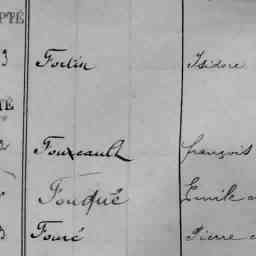 PTÉ
3 Fortin Isidore
TÉ
Fouzeault françois
Fouqué Emile
3 Fouré Pierre